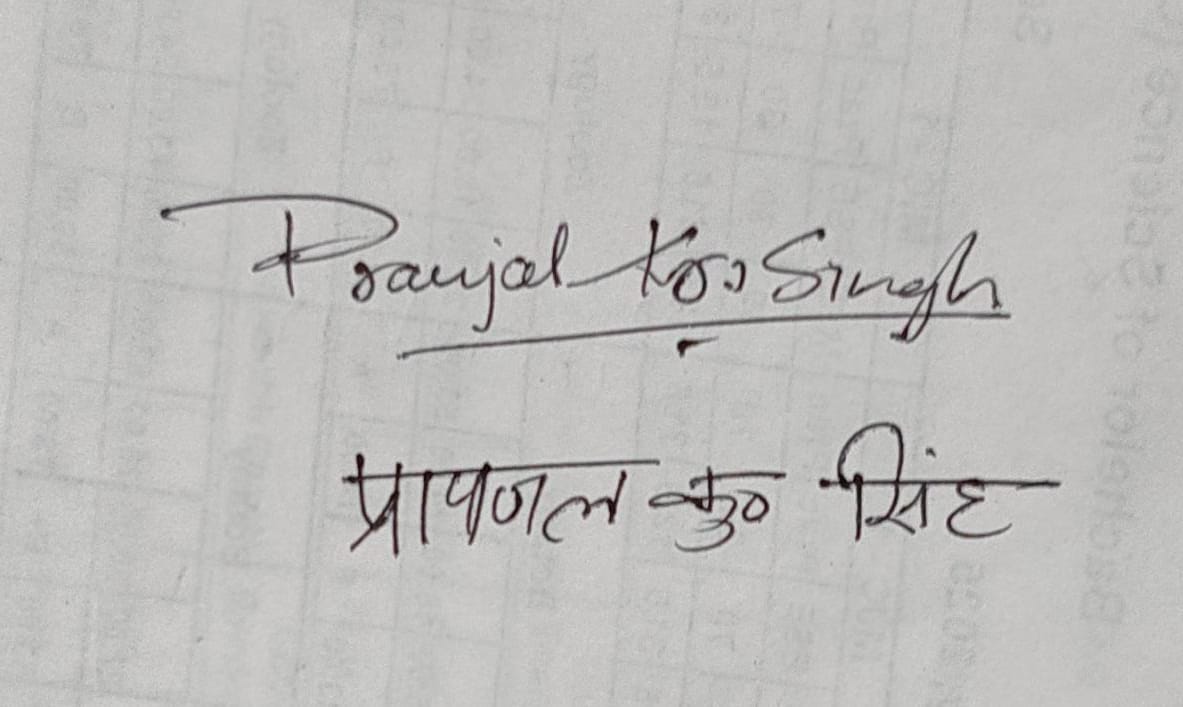 Pranjal Kr. Singh
प्रापजल कु० सिंह